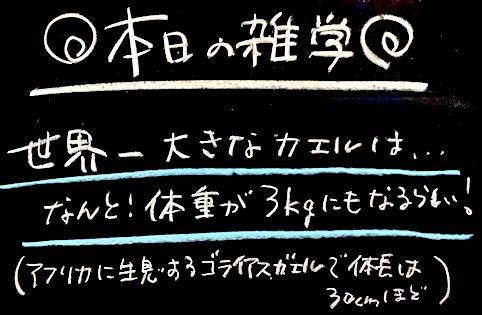 本日の雑学
世界一大きなカエルは...
なんと!体重が3kgにもなるらしい!
(アフリカに生息するゴライアスガエルで体長は
30cmほど)